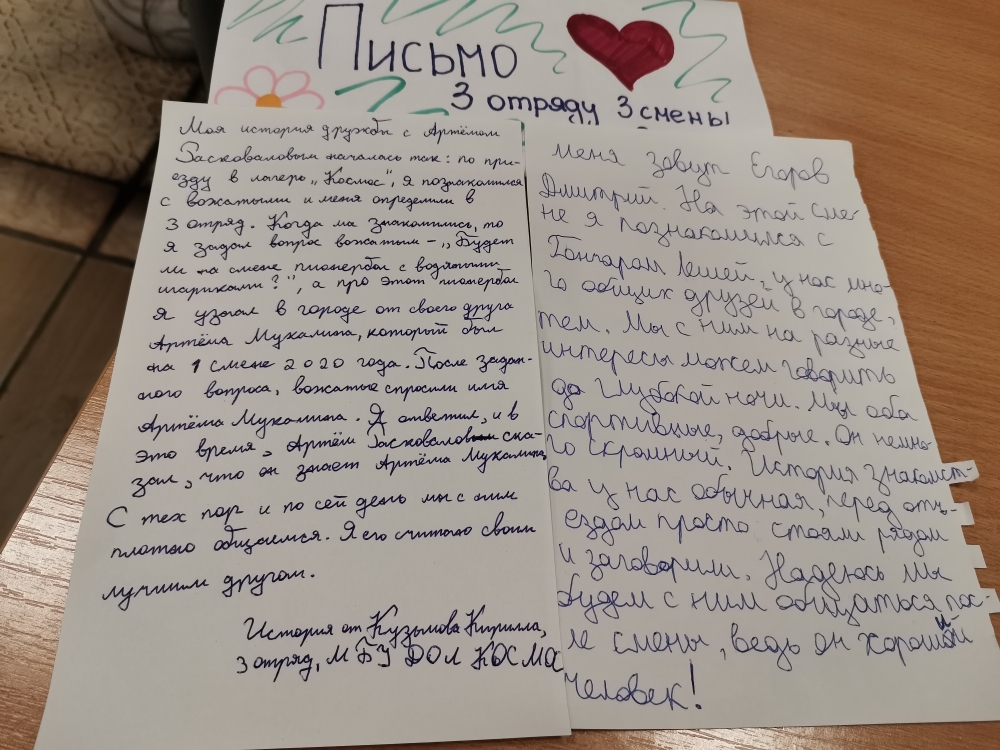 Письмо
3 отряду 3 смены
Моя история дружбы с Артёмом
Басковаловым началась так: по при-
езду в лагерь "Космос", я познакомился
с вожатыми и меня определили в
3 отряд. Когда мы знакомились, то
я задал вопрос вожатым – "Будет
ли на смене пионербол с водяными
шариками?", а про этот пионербол
я узнал в городе от своего друга
Артёма Мухалина, который был
на 1 смене 2020 года. После задан-
ного вопроса, вожатые спросили имя
Артёма Мухалина. Я ответил, и в
это время, Артём Басковалов ска-
зал, что он знает Артёма Мухалина,
С тех пор и по сей день мы с ним
плотно общаемся. Я его считаю своим
лучшим другом.
История от Кузьмова Кирилла,
3 отряд, МБУ ДОЛ КОСМОС
Меня зовут Егоров
Дмитрий. На этой сме-
не я познакомился с
Гончаром Лёшей, у нас мно-
го общих друзей в городе,
тем. Мы с ним на разные
интересы можем говорить
до глубокой ночи. Мы оба
спортивные, добрые. Он немно-
го скромный. История знакомст-
ва у нас обычная, перед отъ-
ездом просто стояли рядом
и заговорили. Надеюсь мы
будем с ним общаться пос-
ле смены, ведь он хороший
человек!